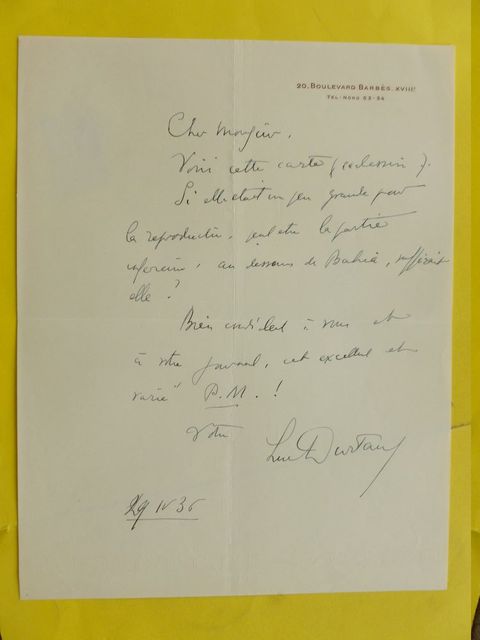 20. BOULEVARD BARBÈS. XVIIIᵉ
TEL. NORD 63-54
Cher Monsieur,
Voici cette carte (ce dessin).
Si elle était un peu grande pour
la reproduction, peut être la partie
inférieure, au dessous de Bahia, suffirait
elle ?
Bien cordialement à vous et
à votre journal, cet excellent et
varié "P.M." !
Votre
Luc Durtain
29 IV 36